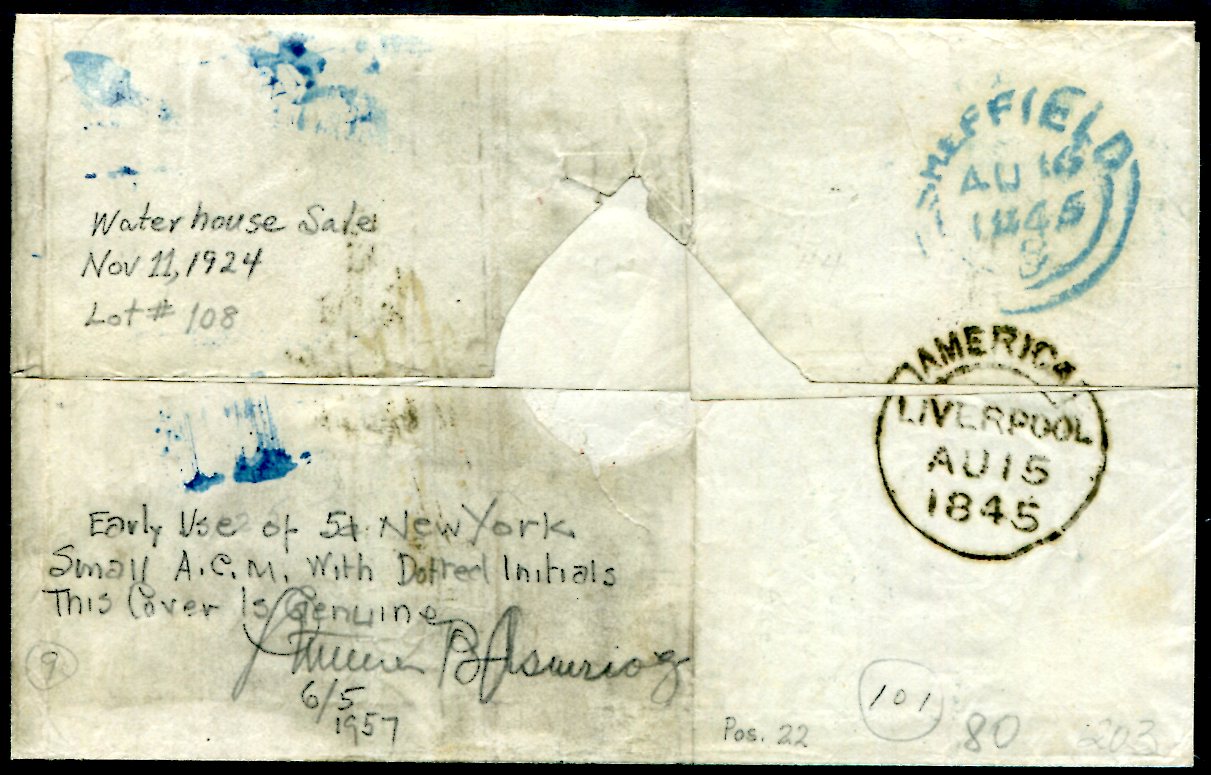 SHEFFIELD
AU 16
1845
8
Waterhouse Sale
Nov 11, 1924
Lot # 108
AMERICA
LIVERPOOL
AU 15
1845
Early Use of 5¢ New York
Small A.C.M. With Dotted Initials
This Cover Is Genuine
6/5
1957
9
Pos. 22
101
80
203